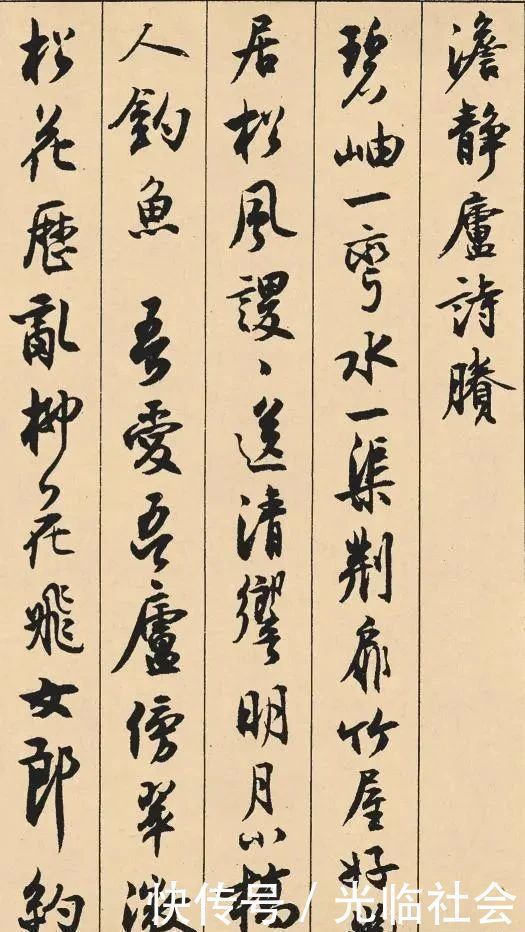 澹靜廬詩賸
碧岫一彎水一渠荆扉竹屋好
居松風謖〻送清響明月小橋
人釣魚 吾愛吾廬傍翠微
松花歷亂柳花飛女郎約
快传号 / 光临社会